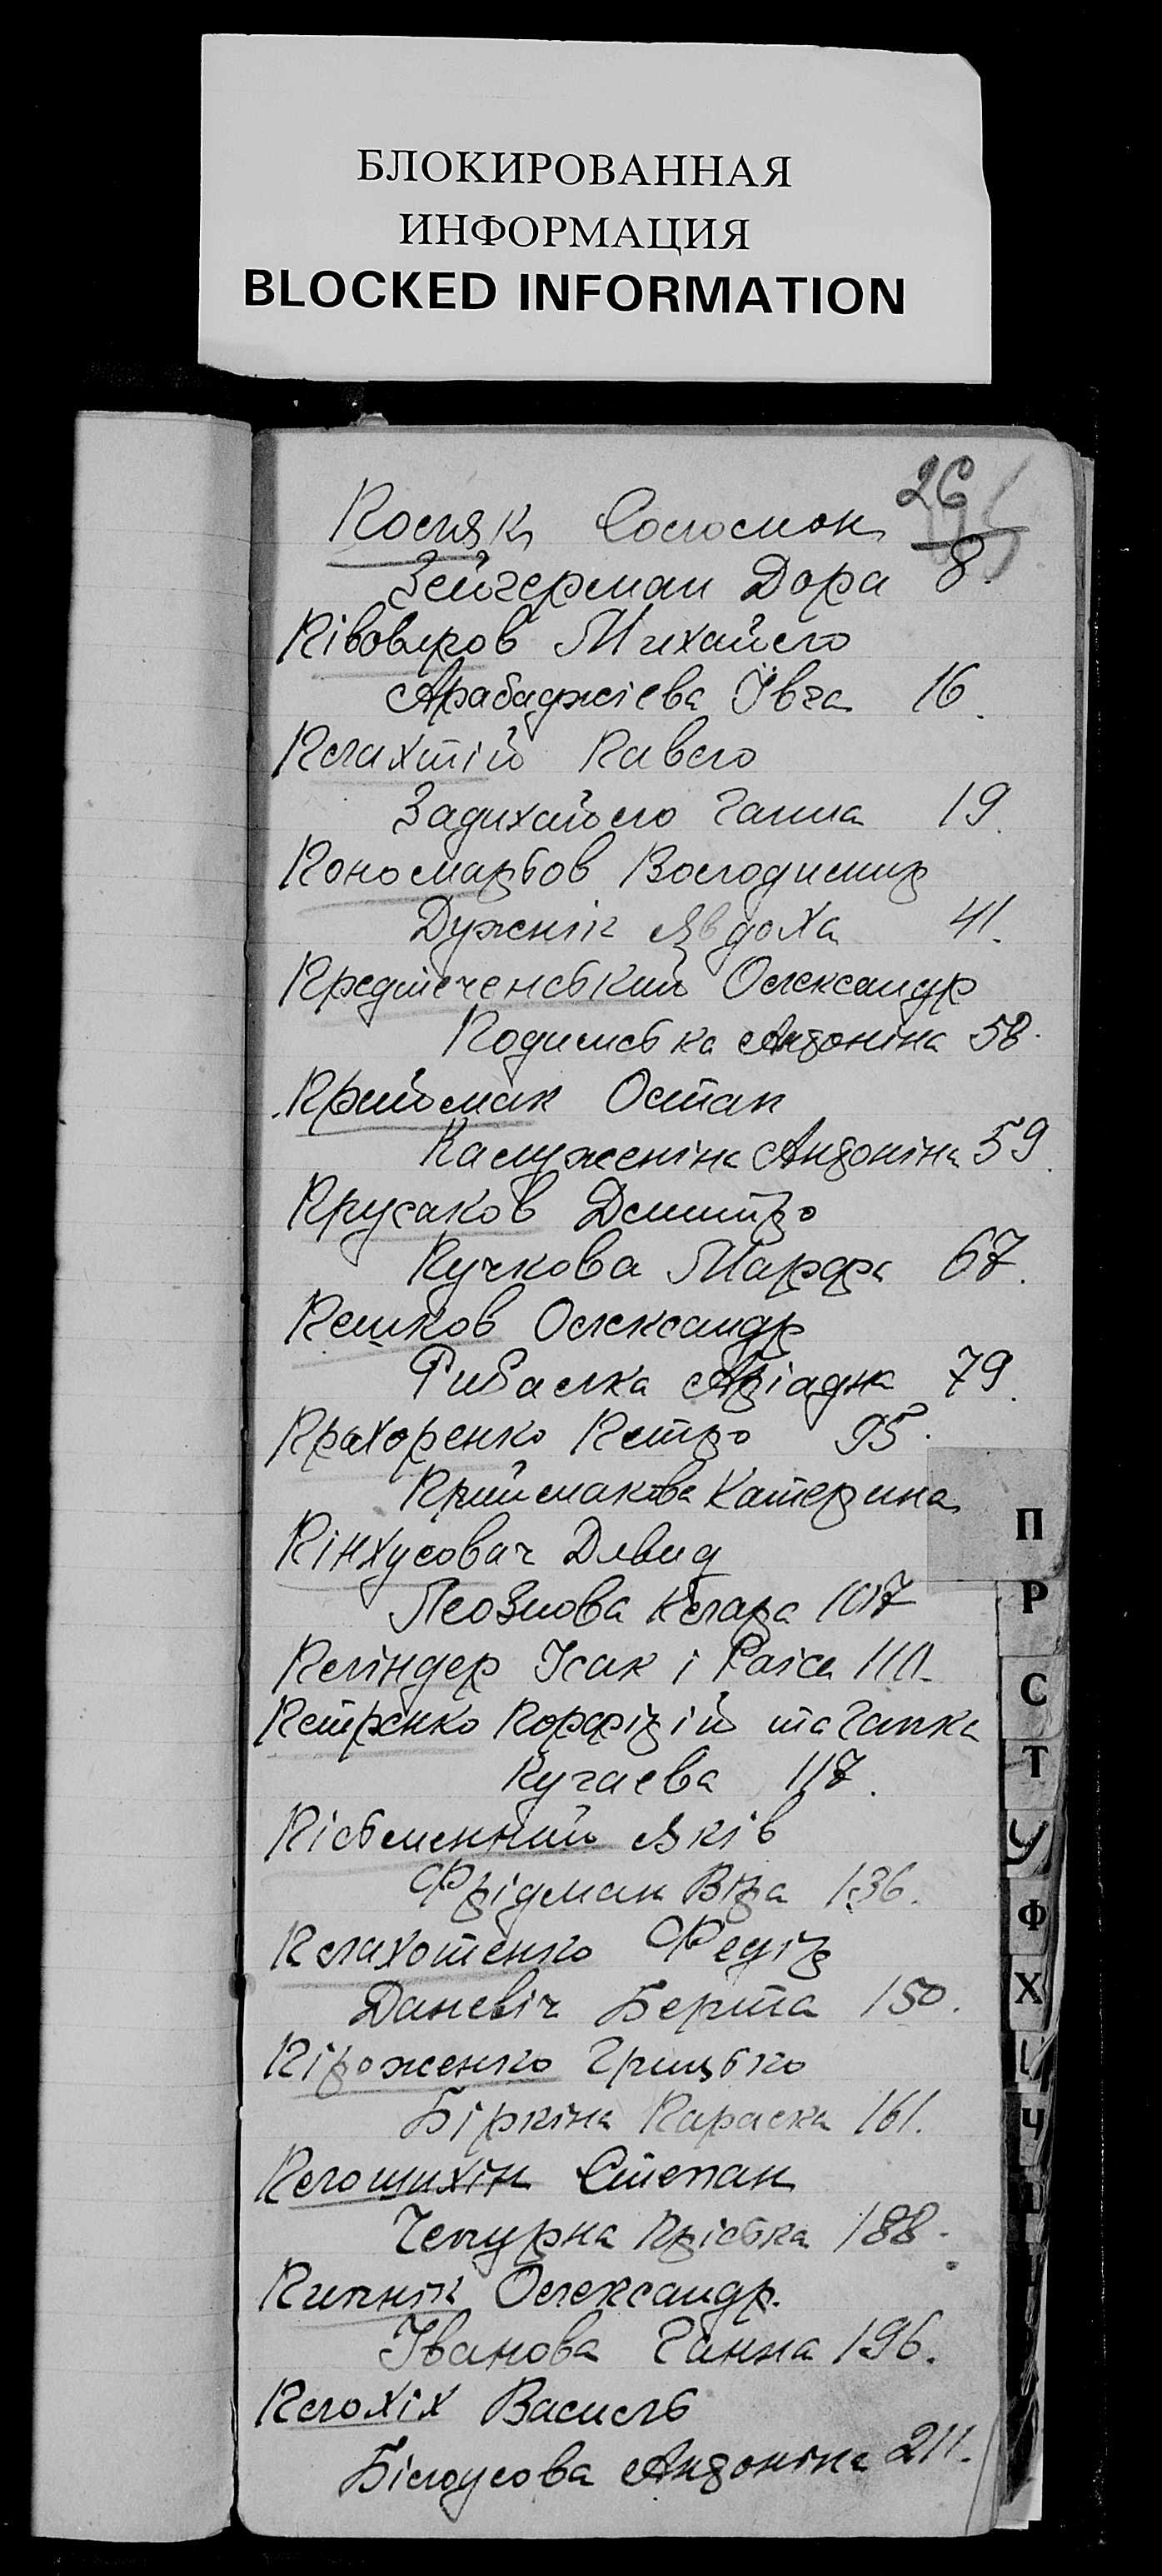 БЛОКИРОВАННАЯ
ИНФОРМАЦИЯ
BLOCKED INFORMATION
26
Поляк Соломон
Зейгерман Дора 8.
Півоваров Михайло
Арабаджієва Ївга 16.
Плахтій Павло
Задихайло Ганна 19.
Пономарьов Володимир
Дужнік Явдоха 41.
Предтеченський Олександр
Подимська Антоніна 58.
Приймак Остап
Калуженіна Антоніна 59.
Прусаков Дмитро
Пучкова Марфа 67.
Пешков Олександр
Рибалка Аріадна 79.
Прахоренко Петро 95.
Приймакова Катерина
Пінхусович Давид
Лознова Клара 107
Пліндер Ісак і Раіса 110.
Петренко Порфірій та Гапка
Пугаєва 117.
Письменний Яків
Фрідман Віра 136.
Плахотенко Федір
Даневіч Берта 150.
Піроженко Грицько
Біркіна Параска 161.
Плошихін Степан
Чепурна Пріська 188.
Пипнік Олександр.
Іванова Ганна 196.
Плохіх Василь
Білоусова Антоніна 211.
П
Р
С
Т
У
Ф
Х
Ц
Ч